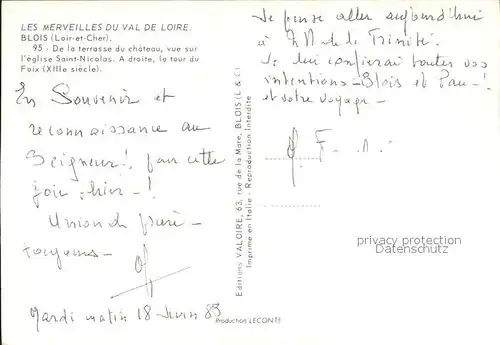 LES MERVEILLES DU VAL DE LOIRE.
BLOIS (Loir-et-Cher).
95 - De la terrasse du château, vue sur
l'église Saint-Nicolas. A droite, la tour du
Foix (XIIIe siècle).
En Souvenir et
reconnaissance au
Seigneur! pour cette
joie : hier - !
Union de prière -
toujours -
Mardi matin 18 Juin 85
Editions VALOIRE, 63, rue de la Mare, BLOIS (L & C)
Imprimé en Italie - Reproduction Interdite
Production LECONTE
Je pense aller aujourd'hui
à N D de la Trinité.
Je lui confierai toutes vos
intentions - Blois et Pau - !
et votre voyage -
privacy protection
Datenschutz